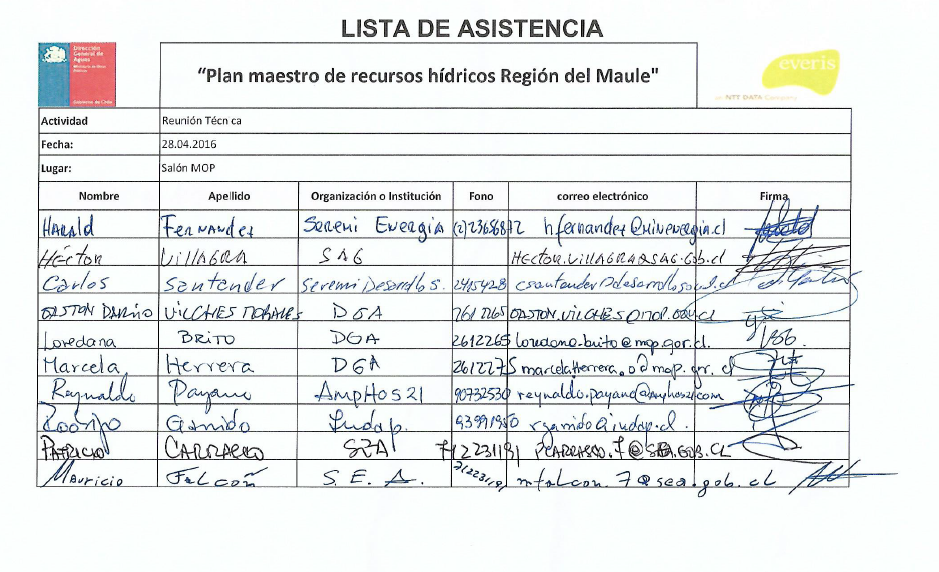 LISTA DE ASISTENCIA
Dirección General de Aguas
Gobierno de Chile
"Plan maestro de recursos hídricos Región del Maule"
everis
an NTT DATA Company
Actividad Reunión Técnica
Fecha: 28.04.2016
Lugar: Salón MOP
Nombre Apellido Organización o Institución Fono correo electrónico Firma
Harald Fernandez Seremi Energia hfernandez@minenergia.cl
Héctor Villagra SAG Hector.Villagra@SAG.Gob.cl
Carlos Santander Seremi Desarollo S. 2415428 csantander@desarrollosocial.cl
Gaston Dariño Vilches Morales DGA 2612265 Gaston.Vilches@mop.gov.cl
Loredana Brito DGA 2612265 loredana.brito@mop.gov.cl.
Marcela Herrera DGA 2612275 marcela.herrera.o@mop.gov.cl
Reynaldo Payano Amphos21 90732530 reynaldo.payano@amphos21.com
Rodrigo Garrido Indap. rgarrido@indap.cl.
Patricio Carrasco SEA 712231191 pcarrasco.7@sea.gob.cl
Mauricio Falcon S.E.A. mfalcon.7@sea.gob.cl